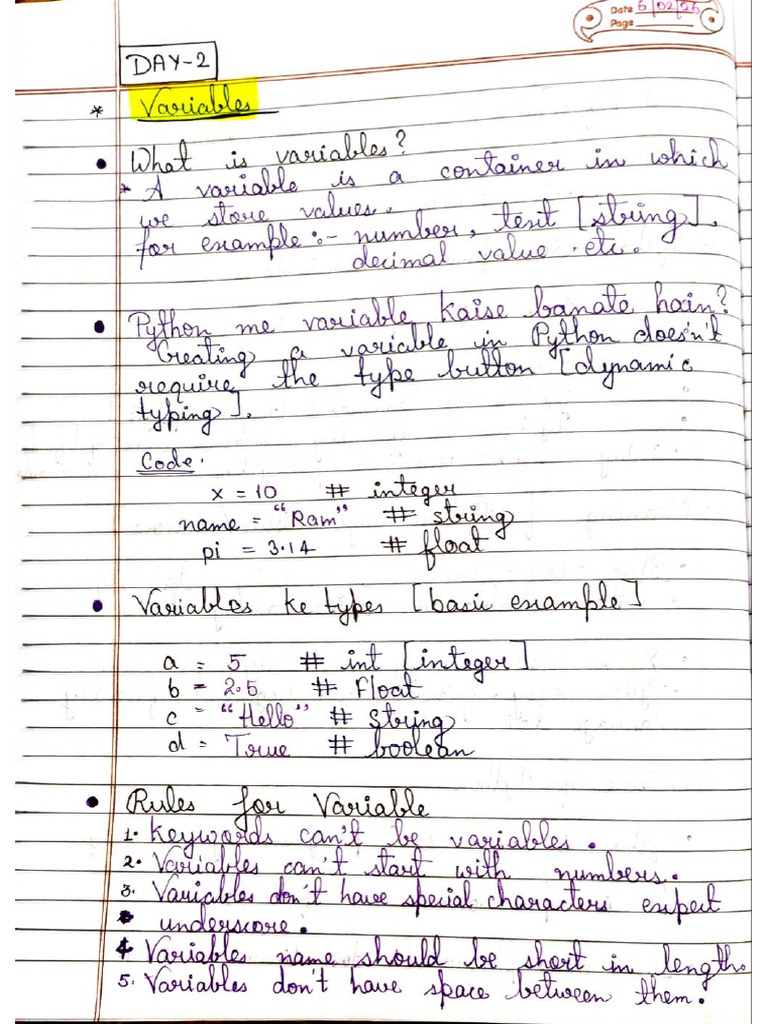 Date 6/02/26
Page
DAY-2
* Variables
• What is variables?
* A variable is a container in which
we store values.
for example:- number, text [string],
decimal value etc.
• Python me variable kaise banate hain?
Creating a variable in Python doesn't
require the type button [dynamic
typing].
Code.
x = 10 # integer
name = "Ram" # string
pi = 3.14 # float
• Variables ke types [basic example]
a = 5 # int [integer]
b = 2.5 # Float
c = "Hello" # String
d = True # boolean
• Rules for Variable
1. Keywords can't be variables.
2. Variables can't start with numbers.
3. Variables don't have special characters expect
underscore.
4 Variables name should be short in length.
5. Variables don't have space between them.